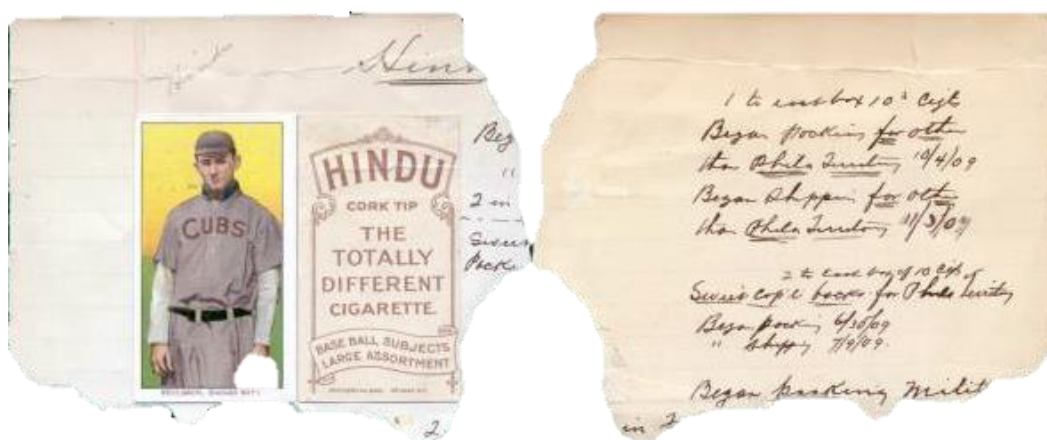 Hin
CUBS
HINDU
CORK TIP
THE
TOTALLY
DIFFERENT
CIGARETTE.
BASE BALL SUBJECTS
LARGE ASSORTMENT
Beg
"
2 in
Pack
2
1 to each box 10s Cigts
Began packing for other
than Phila Territory 10/4/09
Began shipping for other
than Phila Territory
2 to each box of 10 Cigts
backs for Phila
Began packing 6/30/09
" shipping 7/9/09
Began packing Milit
in 2